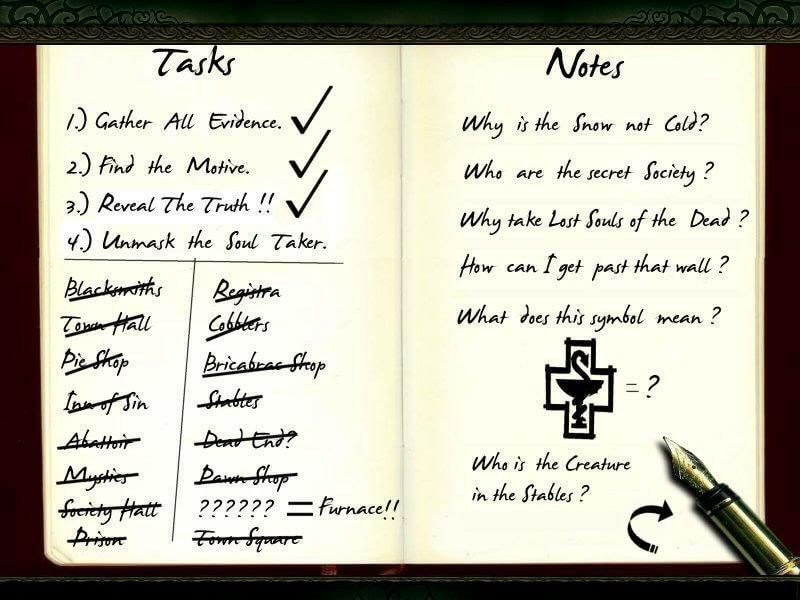 Tasks
1.) Gather All Evidence.
2.) Find the Motive.
3.) Reveal The Truth !!
4.) Unmask the Soul Taker.
Blacksmiths
Town Hall
Pie Shop
Inn of Sin
Abattoir
Mystics
Society Hall
Prison
Registra
Cobblers
Bricabrac Shop
Stables
Dead End?
Pawn Shop
?????? = Furnace!!
Town Square
Notes
Why is the Snow not Cold?
Who are the secret Society ?
Why take Lost Souls of the Dead ?
How can I get past that wall ?
What does this symbol mean ?
= ?
Who is the Creature
in the Stables ?